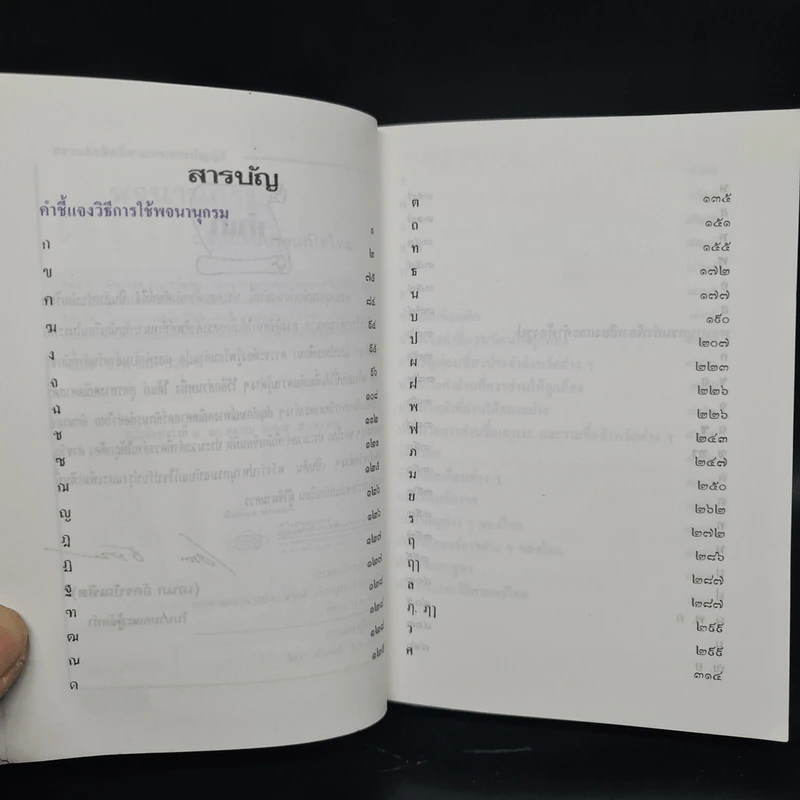 สารบัญ
คำชี้แจงวิธีการใช้พจนานุกรม ๑
ก ๒
ข ๗๕
ค ๘๔
ฆ ๙๔
ง ๙๕
จ ๙๖
ฉ ๑๐๘
ช ๑๑๒
ซ ๑๒๑
ฌ ๑๒๕
ญ ๑๒๖
ฎ ๑๒๖
ฏ ๑๒๗
ฐ ๑๒๗
ฑ ๑๒๘
ฒ ๑๒๘
ณ ๑๒๘
ด ๑๒๙
ต ๑๓๕
ถ ๑๕๑
ท ๑๕๕
ธ ๑๗๒
น ๑๗๗
บ ๑๙๐
ป ๒๐๗
ผ ๒๒๓
ฝ ๒๒๖
พ ๒๒๖
ฟ ๒๔๓
ภ ๒๔๗
ม ๒๕๐
ย ๒๖๒
ร ๒๗๒
ฤ ๒๘๖
ฤๅ ๒๘๗
ล ๒๘๗
ฦ, ฦๅ ๒๙๙
ว ๒๙๙
ศ ๓๑๔